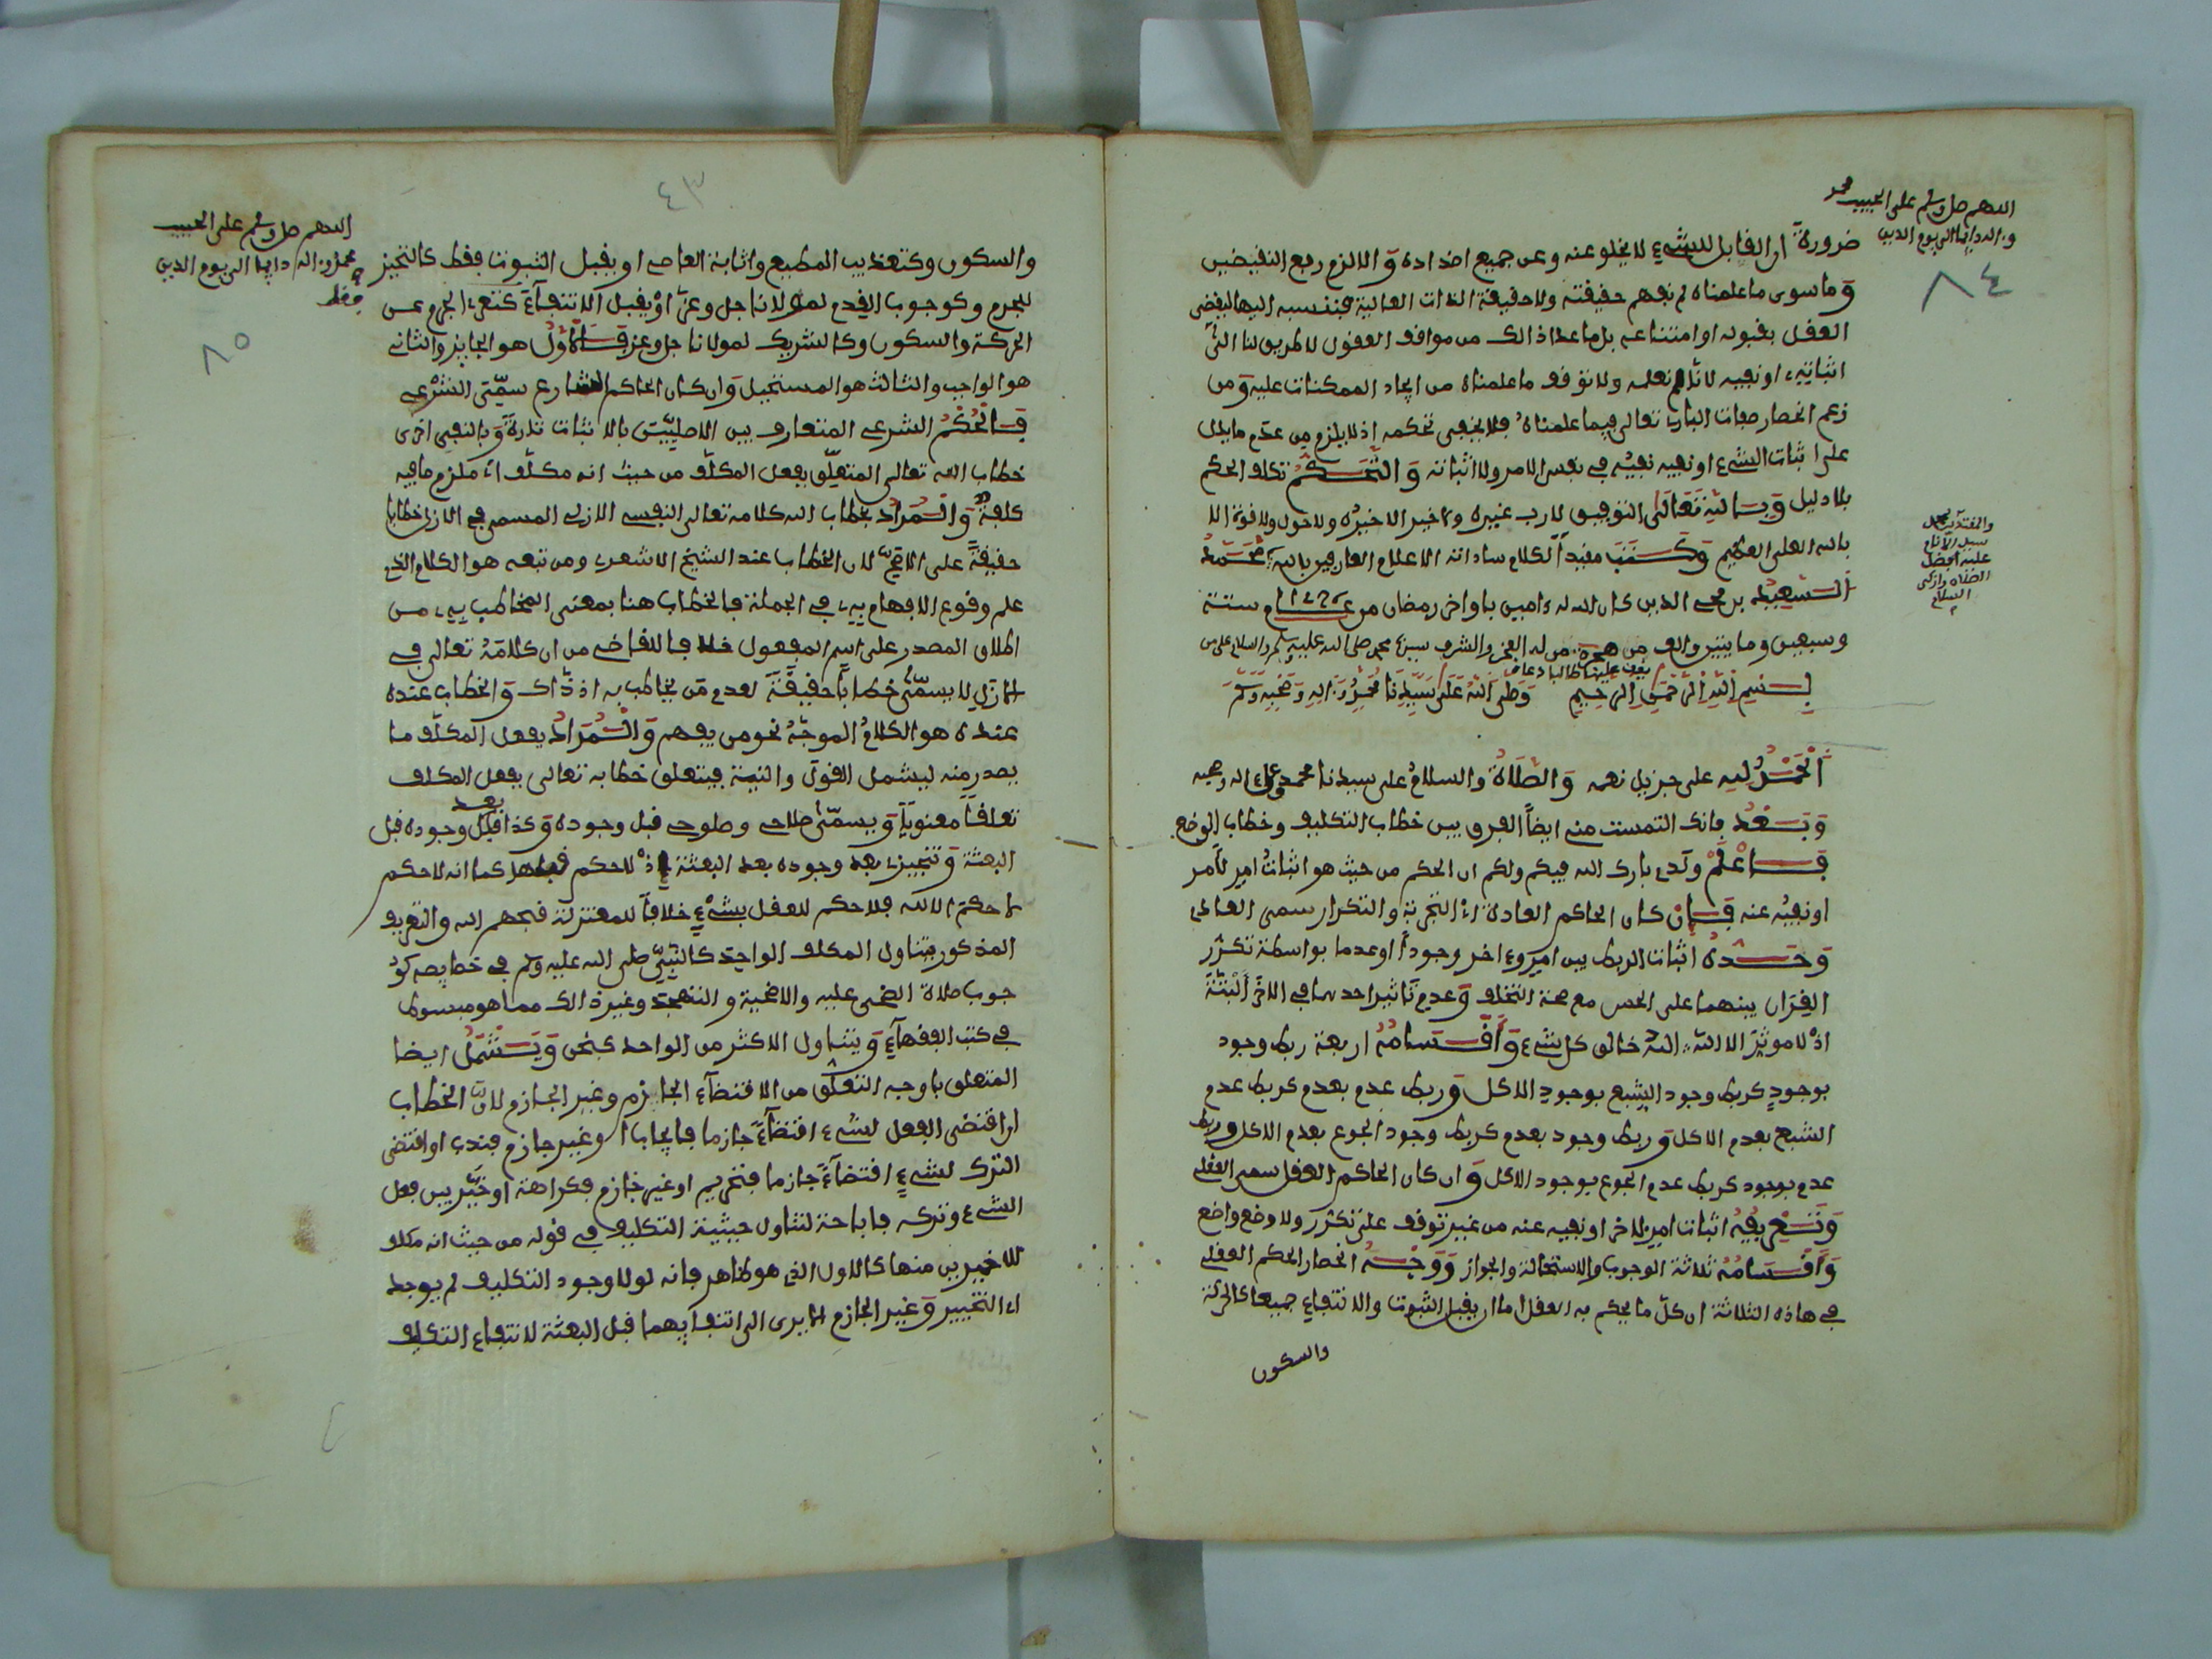 اللهم صل وسلم على الحبيب محمد
وءاله دايما الى يوم الدين
٨٤
ضرورة ان القابل للشيء لا يخلو عنه وعن جميع اضداده والا لزم رفع النقيضين
وما سوى ما علمناه لم نفهم حقيقته ولا حقيقة الذات العالية فننسبه اليها ليقضي
العقل بقبوله او امتناعه بل ما عدا ذالك من مواقف العقول لا طريق لنا الى
اثباته او نفيه لانا لم نعلمه ولا توقف ما علمناه من ايجاد الممكنات عليه ومن
زعم انحصار صفات البارى تعالى فيما علمناه فلا يخفى تحكمه اذ لا يلزم من عدم ما يدل
على اثبات الشيء او نفيه نفيه في نفس الامر ولا اثباته والتحكم تكلف الحكم
بلا دليل وبالله تعالى التوفيق لا رب غيره ولا خير الا خيره ولا حول ولا قوة الا
بالله العلي العظيم وكتب مقيد الكلام ساداته الاعلام العارفين بالله محمد
الشعيط بن محي الدين كان الله له ءامين باواخر رمضان من عام ستة
وسبعين ومايتين والف من هجرة من له العز والشرف سيدنا محمد صلى الله عليه وسلم والسلام على من
يقف عليها طالبا دعاءه
والمقتدين بكل
سبيل الاتباع
عليه افضل
الصلاة وازكى
السلام
بسم الله الرحمن الرحيم وصلى الله على سيدنا محمد وءاله وصحبه وسلم
الحمد لله على جزيل نعمه والصلاة والسلام على سيدنا محمد وعلى ءاله وصحبه
وبعد فانك التمست منى ايضا الفرق بين خطاب التكليف وخطاب الوضع
فاعلم ولدى بارك الله فيكم ولكم ان الحكم من حيث هو اثبات امر لأمر
او نفيه عنه فان كان الحاكم العادة اى التجربة والتكرار سمى العادى
وحده اثبات الربط بين امر وءاخر وجودا او عدما بواسطة تكرر
القران بينهما على الحس مع صحة التخلف وعدم تاثير احدهما في الاخر البتة
اذ لا موثر الا الله الله خالق كل شيء واقسامه اربعة ربط وجود
بوجود كربط وجود الشبع بوجود الاكل وربط عدم بعدم كربط عدم
الشبع بعدم الاكل وربط وجود بعدم كربط وجود الجوع بعدم الاكل وربط
عدم بوجود كربط عدم الجوع بوجود الاكل وان كان الحاكم العقل سمى العقلى
وتعريفه اثبات امر لاخر او نفيه عنه من غير توقف على تكرر ولا وضع واضع
واقسامه ثلاثة الوجوب والاستحالة والجواز ووجه انحصار الحكم العقلى
في هاذه الثلاثة ان كل ما يحكم به العقل اما ان يقبل الثبوت والانتفاء جميعا كالحركة
والسكون
٤٣
اللهم صل وسلم على الحبيب
محمد وءاله دايما الى يوم الدين
٨٥
والسكون وكتعذيب المطيع واثابة العاصى او يقبل الثبوت فقط كالتحيز
للجرم وكوجوب القدم لمولانا جل وعز او يقبل الانتفاء كتعرى الجرم عن
الحركة والسكون وكالشريك لمولانا جل وعز فالاول هو الجايز والثانى
هو الواجب والثالث هو المستحيل وان كان الحاكم الشارع سمى الشرعى
فالحكم الشرعى المتعارف بين الاصليين بالاثبات تارة وبالنفى اخرى
خطاب الله تعالى المتعلق بفعل المكلف من حيث انه مكلف اى ملزم ما فيه
كلفة والمراد بخطاب الله كلامه تعالى النفسى الازلى المسمى في الازل خطابا
حقيقة على الاصح لان الخطاب عند الشيخ الاشعرى ومن تبعه هو الكلام الذى
علم وقوع الافهام به في الجملة فالخطاب هنا بمعنى المخاطب به من
اطلاق المصدر على اسم المفعول خلافا للقاضى من ان كلامه تعالى في
الازل لا يسمى خطابا حقيقة لعدم من يخاطب به اذ ذاك والخطاب عنده
عنده هو الكلام الموجه نحو من يفهم والمراد بفعل المكلف ما
يصدر منه ليشمل القول والنية فيتعلق خطابه تعالى بفعل المكلف
تعلقا معنويا ويسمى صلاحى وصلوحى قبل وجوده وكذا بعد وجوده قبل
البعثة وتنجيزى بعد وجوده بعد البعثة اذ لا حكم قبلها كما انه لا حكم
لا حكم الا لله فلا حكم للعقل بشيء خلافا للمعتزلة قبحهم الله والتعريف
المذكور يتناول المكلف الواحد كالنبي صلى الله عليه وسلم في خصايصه كو
جوب صلاة الضحى عليه والاضحية والتهجد وغير ذالك مما هو مبسوط
في كتب الفقهاء ويتناول الاكثر من الواحد كنحن ويشمل ايضا
المتعلق باوجه التعلق من الاقتضاء الجازم وغير الجازم لان الخطاب
ان اقتضى الفعل لشيء اقتضاء جازما فايجاب او غير جازم فندب او اقتضى
الترك لشيء اقتضاء جازما فتحريم او غير جازم فكراهة او خير بين فعل
الشيء وتركه فاباحة لتناول حيثية التكليف في قوله من حيث انه مكلف
للاخيرين منها كالاول الذى هو ظاهر فانه لولا وجود التكليف لم يوجدا
اى التخيير وغير الجازم الا يرى الى انتفايهما قبل البعثة لانتفاء التكليف